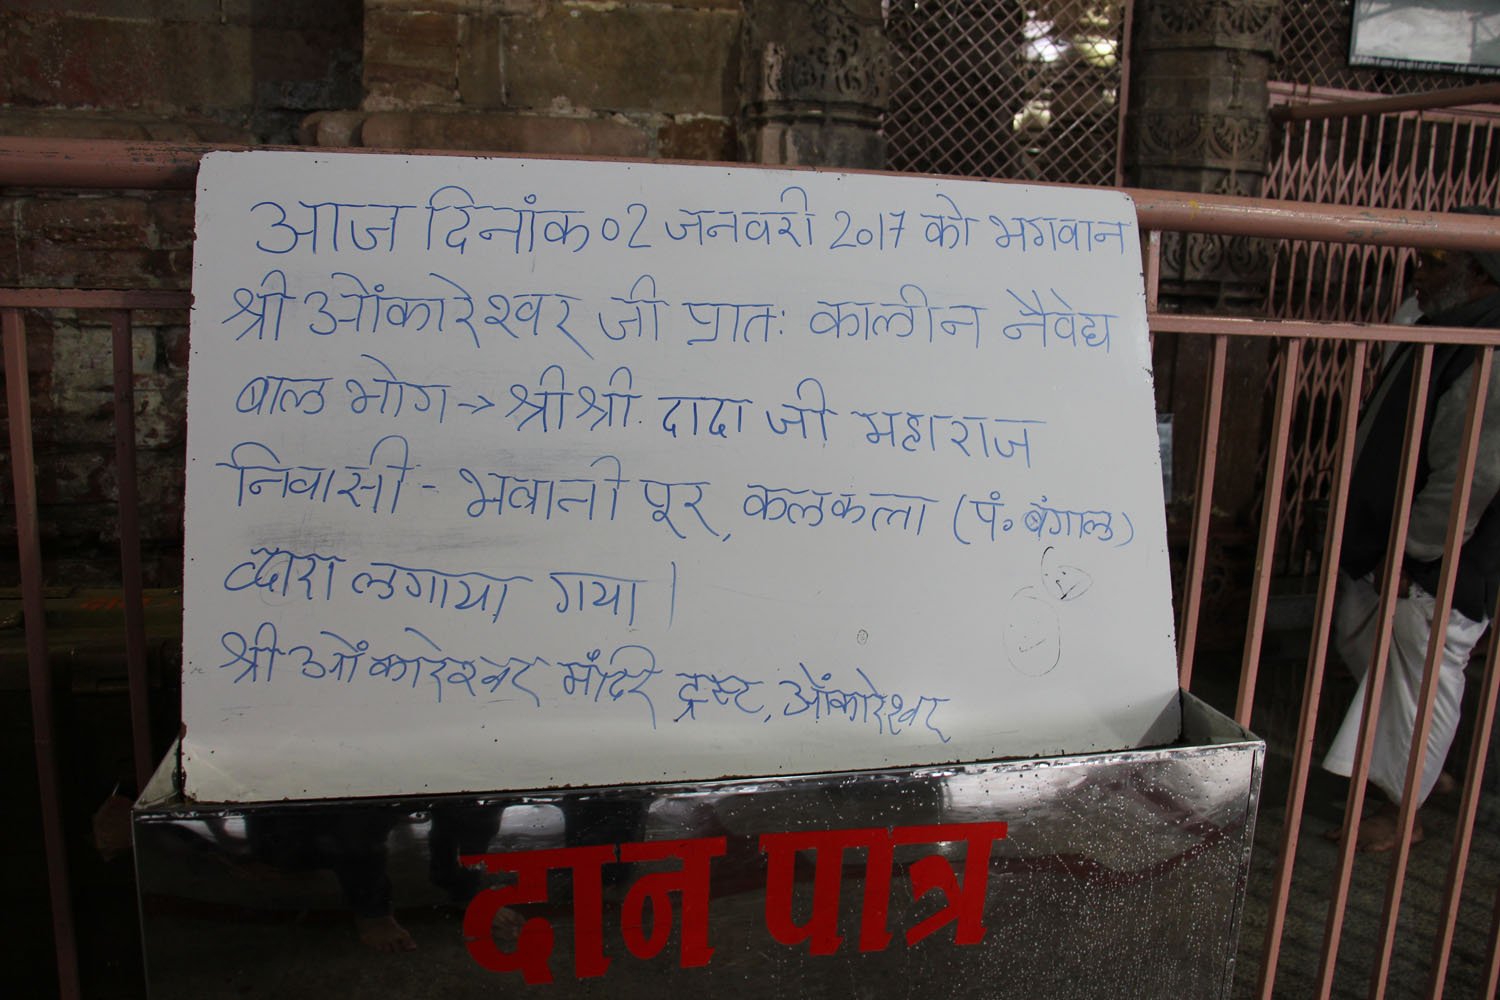 आज दिनांक 02 जनवरी 2017 को भगवान
श्री ओंकारेश्वर जी प्रातः कालीन नैवेद्य
बाल भोग → श्री श्री. दादा जी महाराज
निवासी - भवानी पूर, कलकत्ता (पं० बंगाल)
द्वारा लगाया गया।
श्री ओंकारेश्वर मंदिर ट्रस्ट, ओंकारेश्वर
दान पात्र